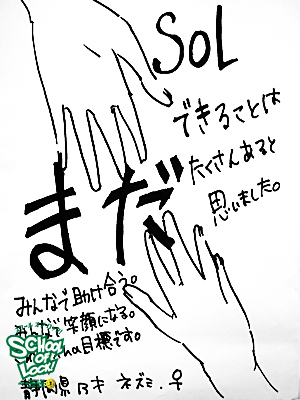 SOL
できることは
まだ
たくさんあると
思いました。
みんなで助け合う。
みんなで笑顔になる。
目標です。
SCHOOL
OF
LOCK!
静岡県 アキ ネズミ.♀